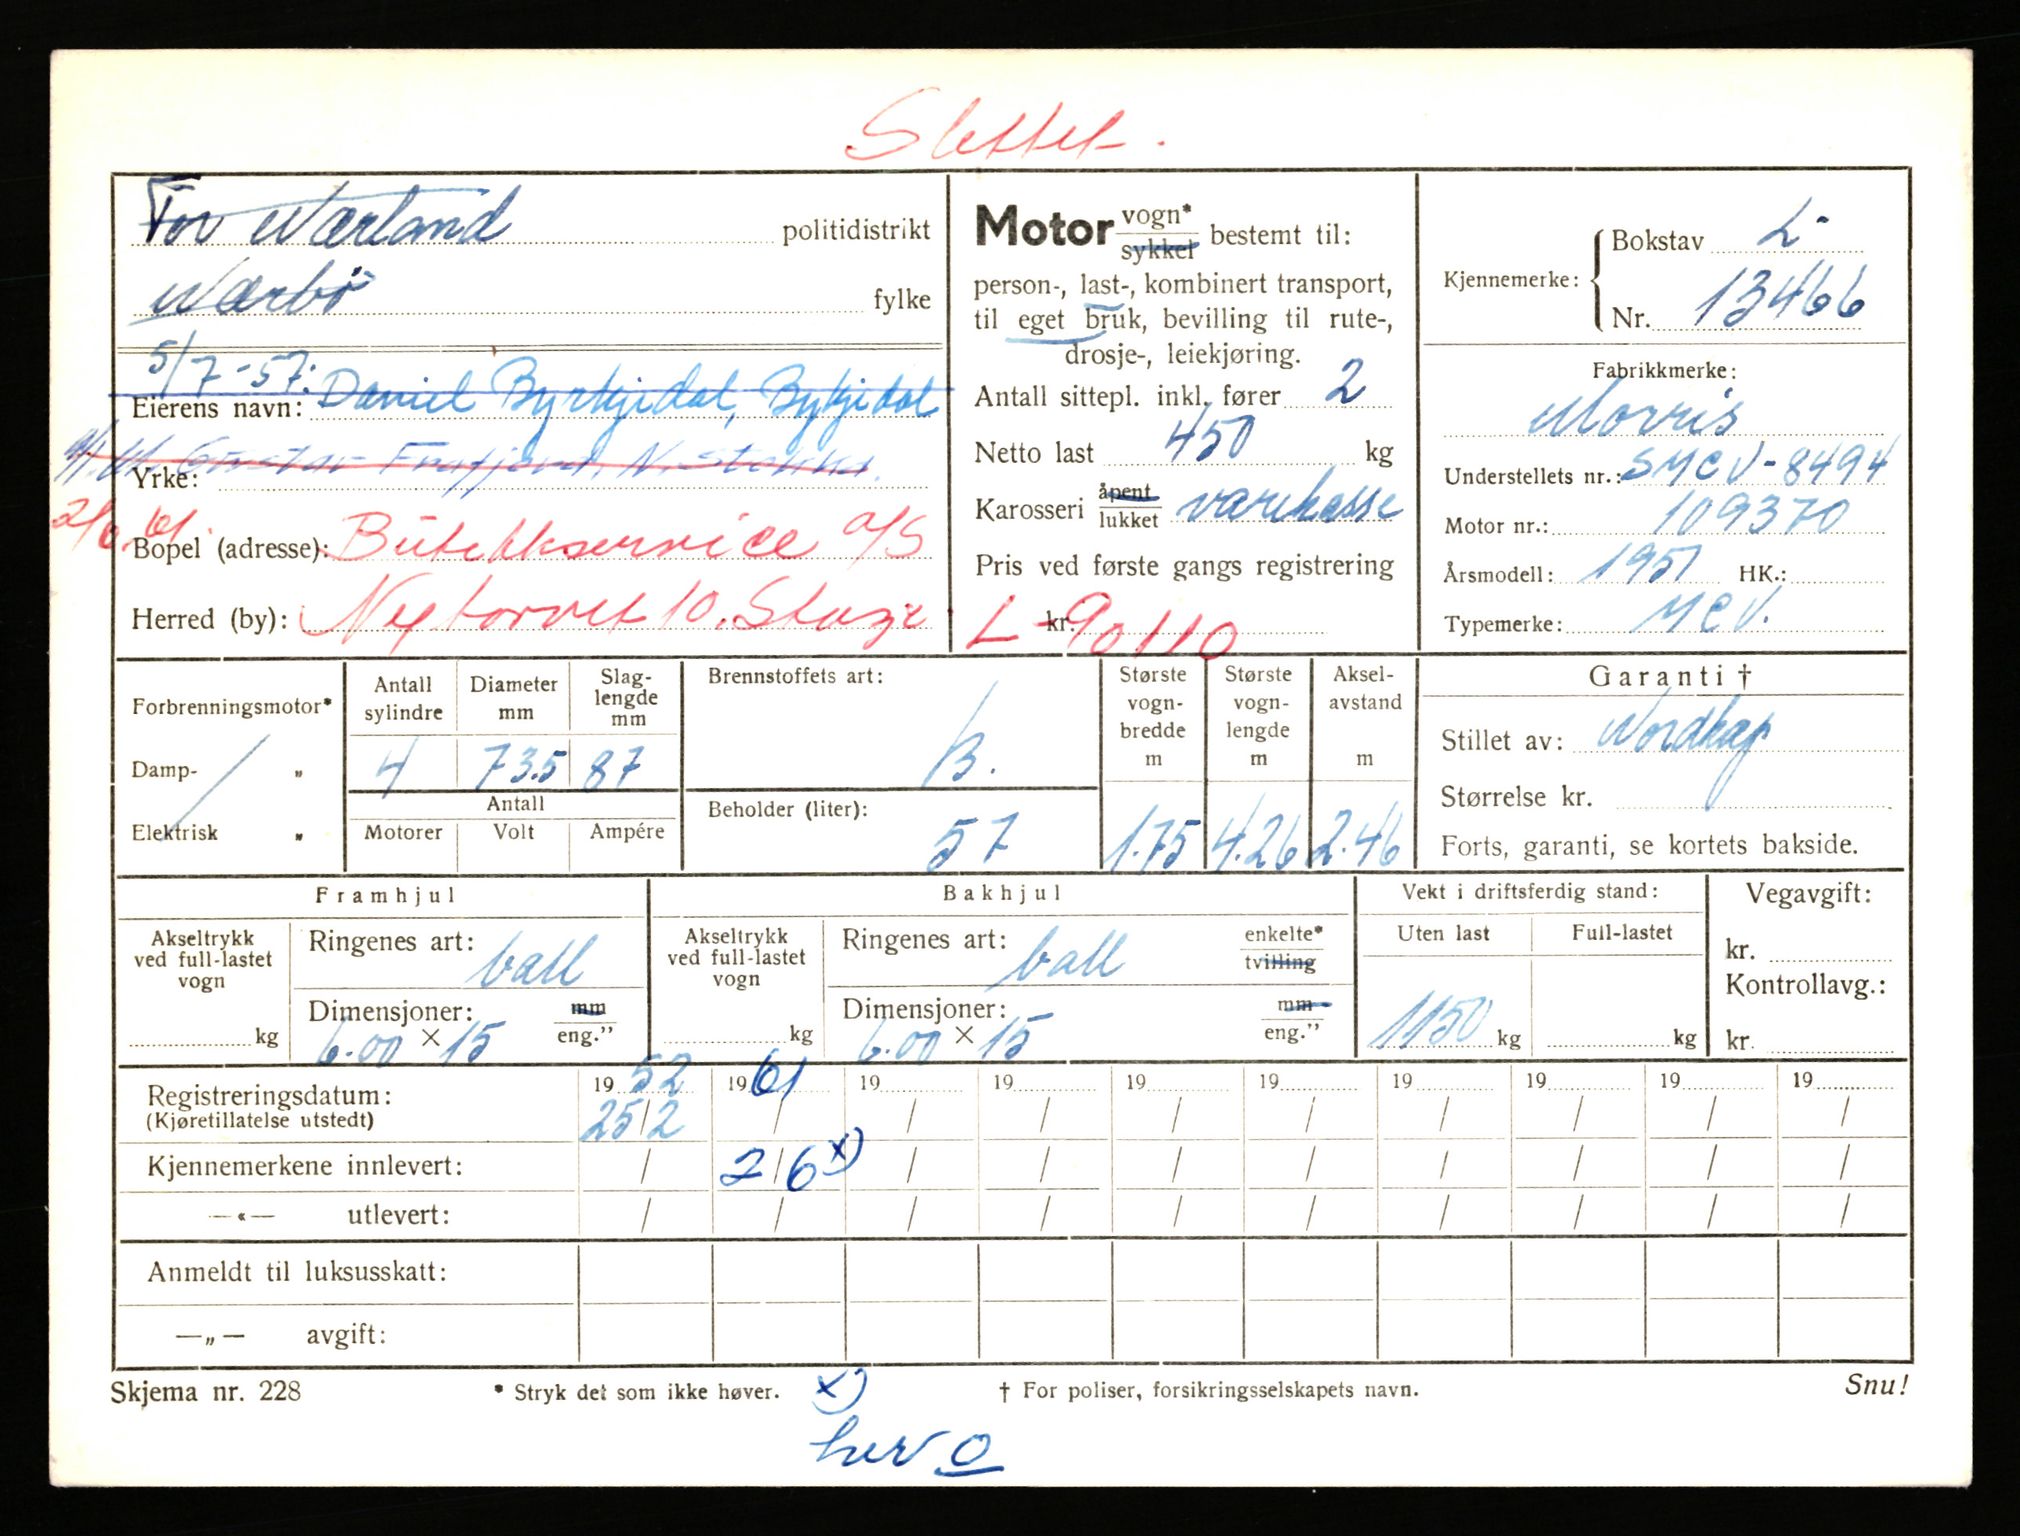 Slettet.
Tor Nærland politidistrikt
Nærbö fylke
5/7-57: Daniel Byrkjedal, Bykjedal
Eierens navn:
Gustav Frafjord, N. Stokka.
Yrke:
2/6.61. Butikkservice A/S
Bopel (adresse):
Herred (by): Nytorvet 10. Stvgr
Motor vogn* sykkel bestemt til:
person-, last-, kombinert transport,
til eget bruk, bevilling til rute-,
drosje-, leiekjøring.
Antall sittepl. inkl. fører 2
Netto last 450 kg
Karosseri åpent lukket varekasse
Pris ved første gangs registrering
kr. L-90110
Kjennemerke: Bokstav L-
Nr. 13466
Fabrikkmerke:
Morris
Understellets nr.: SMCV-8494
Motor nr.: 109370
Årsmodell: 1951 HK.:
Typemerke: MCV.
Forbrenningsmotor*
Damp- „
Elektrisk „
Antall sylindre Diameter mm Slag-lengde mm
4 73.5 87
Antall
Motorer Volt Ampére
Brennstoffets art:
B.
Beholder (liter):
57
Største vogn-bredde m Største vogn-lengde m Aksel-avstand m
1.75 4.26 2.46
Garanti †
Stillet av: Nordkap
Størrelse kr.
Forts, garanti, se kortets bakside.
Framhjul
Akseltrykk ved full-lastet vogn
kg
Ringenes art: ball
Dimensjoner: mm
6.00 × 15 eng.”
Bakhjul
Akseltrykk ved full-lastet vogn
kg
Ringenes art: ball enkelte* tvilling
Dimensjoner: mm
6.00 × 15 eng.”
Vekt i driftsferdig stand:
Uten last Full-lastet
1150 kg kg
Vegavgift:
kr.
Kontrollavg.:
kr.
Registreringsdatum: 19 52 19 61 19 19 19 19 19 19 19 19
(Kjøretillatelse utstedt) 25/2 / / / / / / / / /
Kjennemerkene innlevert: / 2/6 x) / / / / / / / /
—«— utlevert: / / / / / / / / / /
Anmeldt til luksusskatt:
—„— avgift:
Skjema nr. 228 * Stryk det som ikke høver. x) † For poliser, forsikringsselskapets navn. Snu!
her o